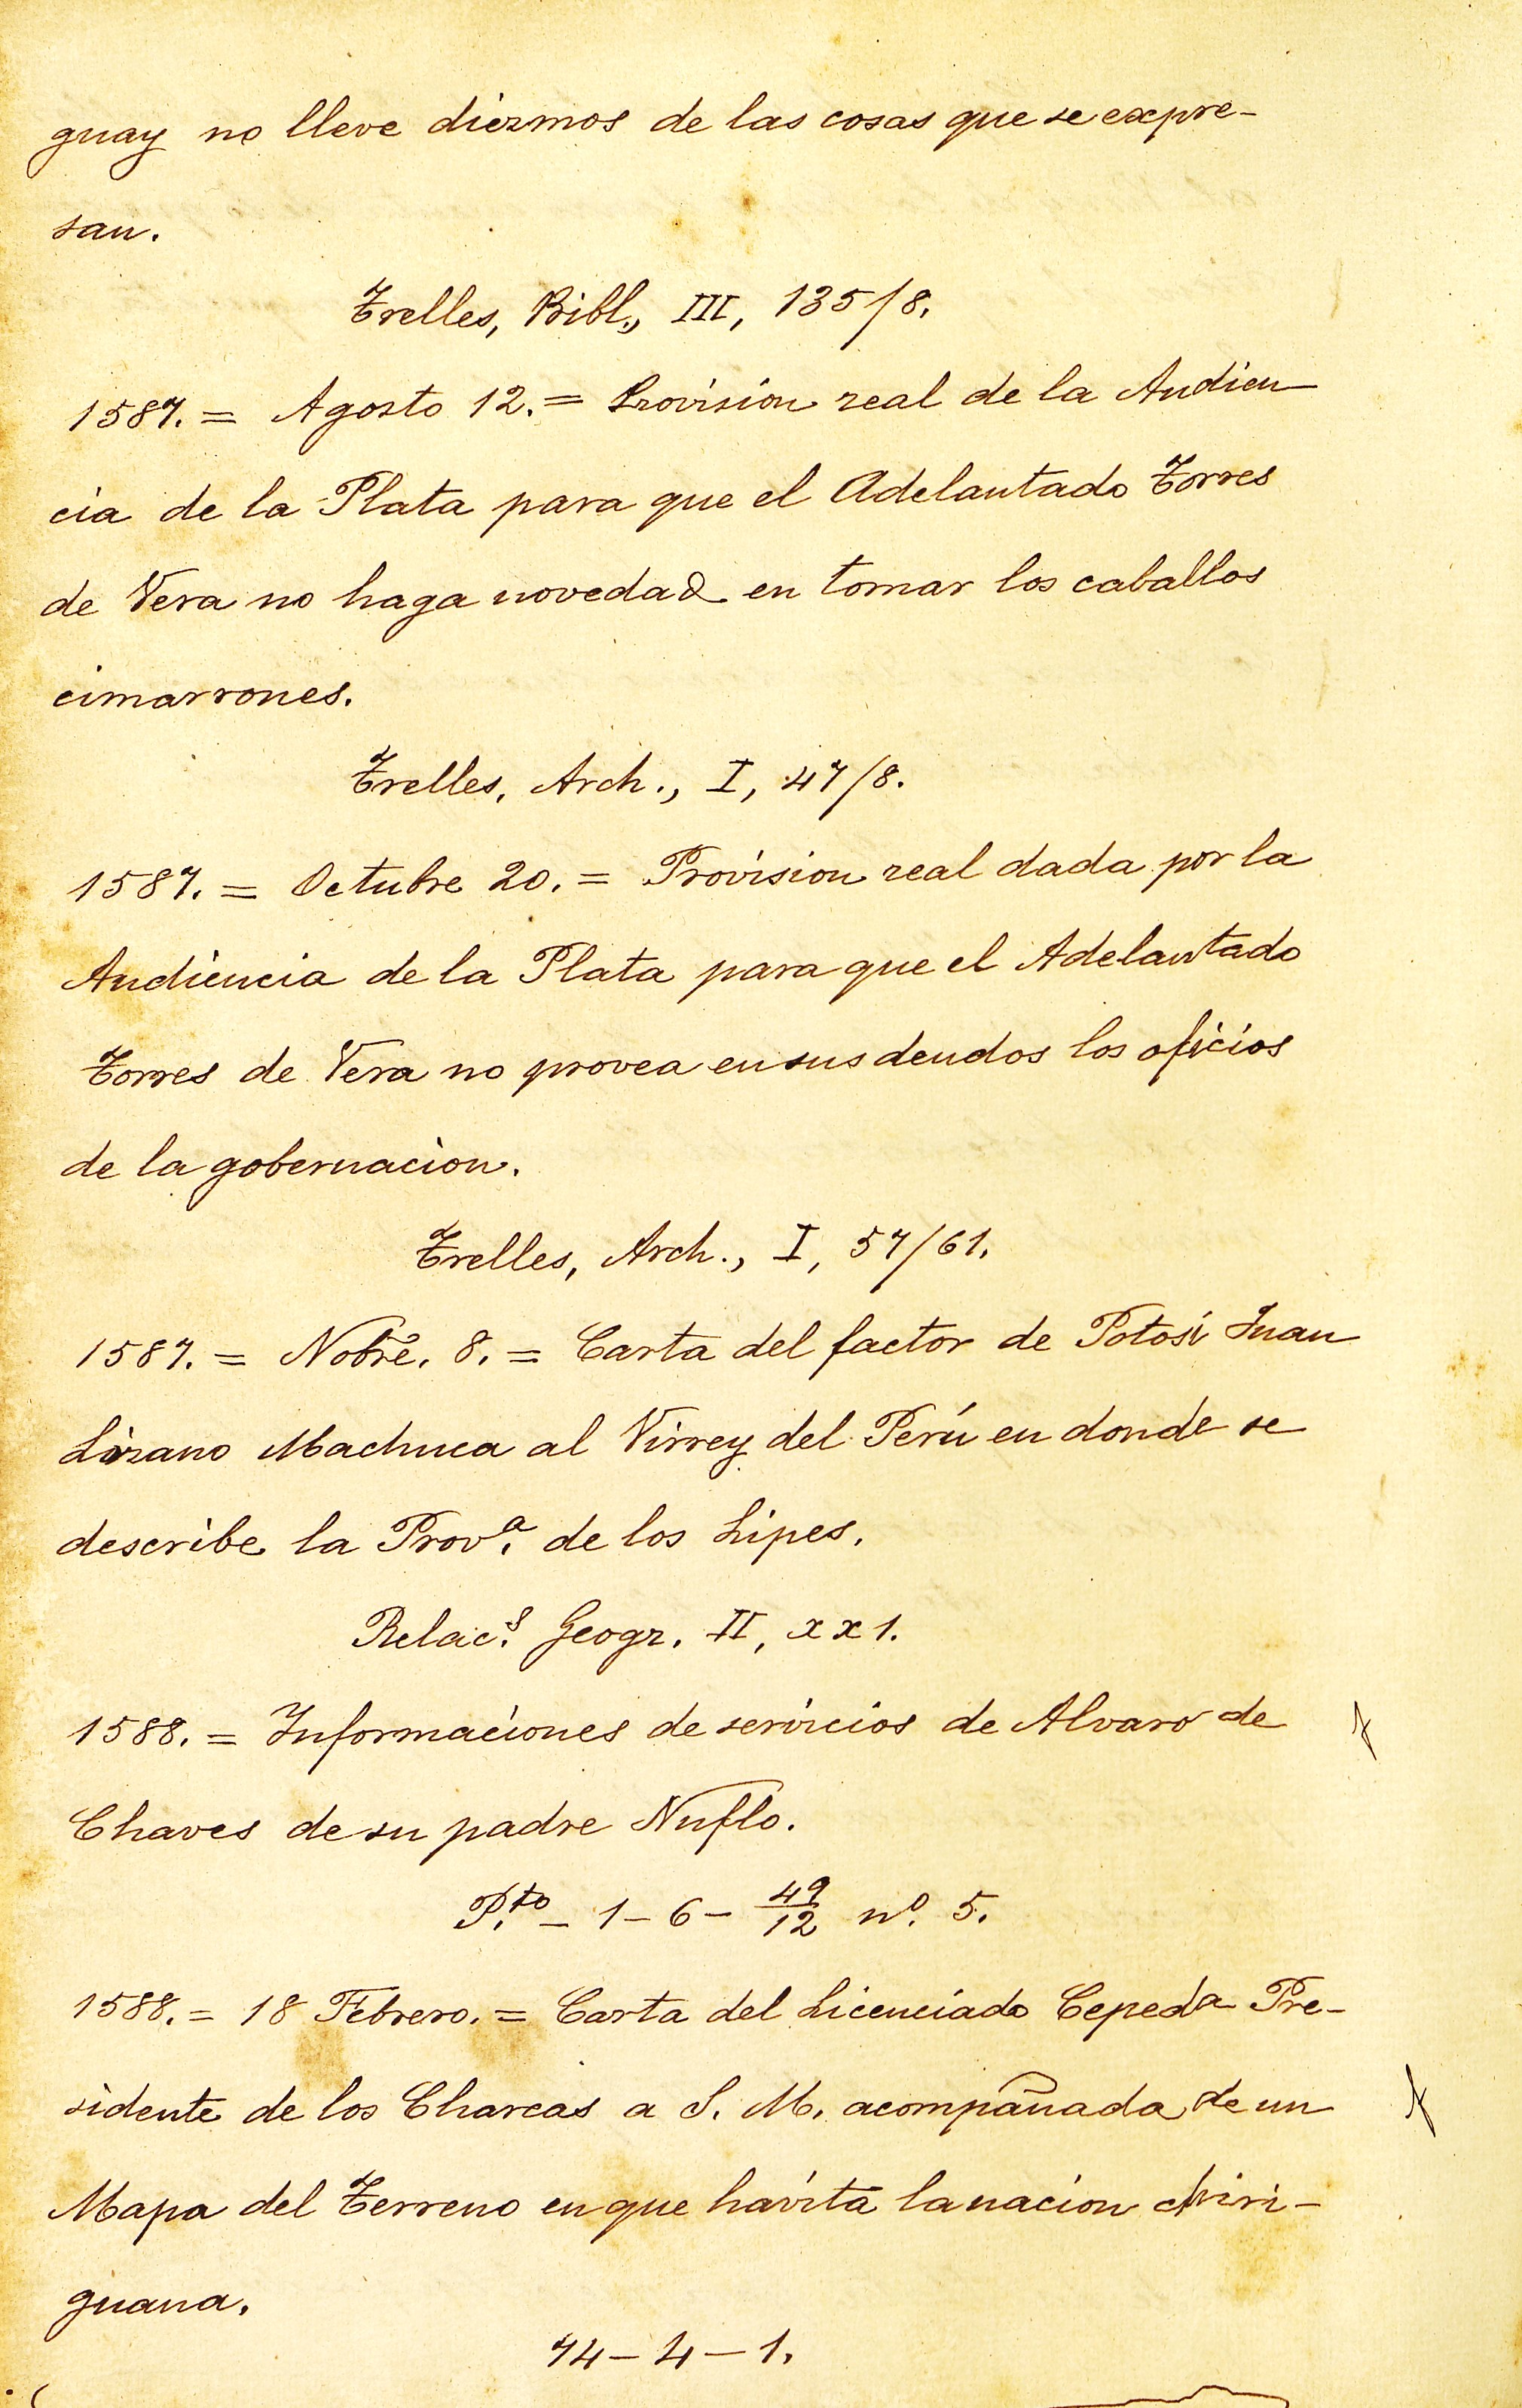 guay no lleve diezmos de las cosas que se expre-
san.
Trelles, Bibl., III, 135/8.
1587. = Agosto 12. = Provision real de la Audien-
cia de la Plata para que el Adelantado Torres
de Vera no haga novedad en tomar los caballos
cimarrones.
Trelles, Arch., I, 47/8.
1587. = Octubre 20. = Provision real dada por la
Audiencia de la Plata para que el Adelantado
Torres de Vera no provea en sus deudos los oficios
de la gobernacion.
Trelles, Arch., I, 57/61.
1587. = Nobre. 8. = Carta del factor de Potosí Juan
Lozano Machuca al Virrey del Perú en donde se
describe la Prov.ª de los Lipes.
Relac.s Geogr. II, xx1.
1588. = Informaciones de servicios de Alvaro de
Chaves de su padre Nuflo.
P.to - 1 - 6 - 49/12 nº. 5.
1588. = 18 Febrero. = Carta del Licenciado Cepeda Pre-
sidente de los Charcas a S. M. acompañada de un
Mapa del Terreno en que havita la nacion chiri-
guana.
74 - 4 - 1.